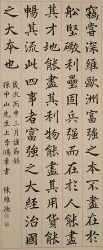 竊嘗深維歐洲富強之本不盡在於
船堅礮利壘固兵強而在於人能盡
其才地能盡其利物能盡其用貨能
暢其流此四事者富強之大經治國
之大本也
歲次丙申三月謹節錄
孫中山先生上李鴻章書 陳維德